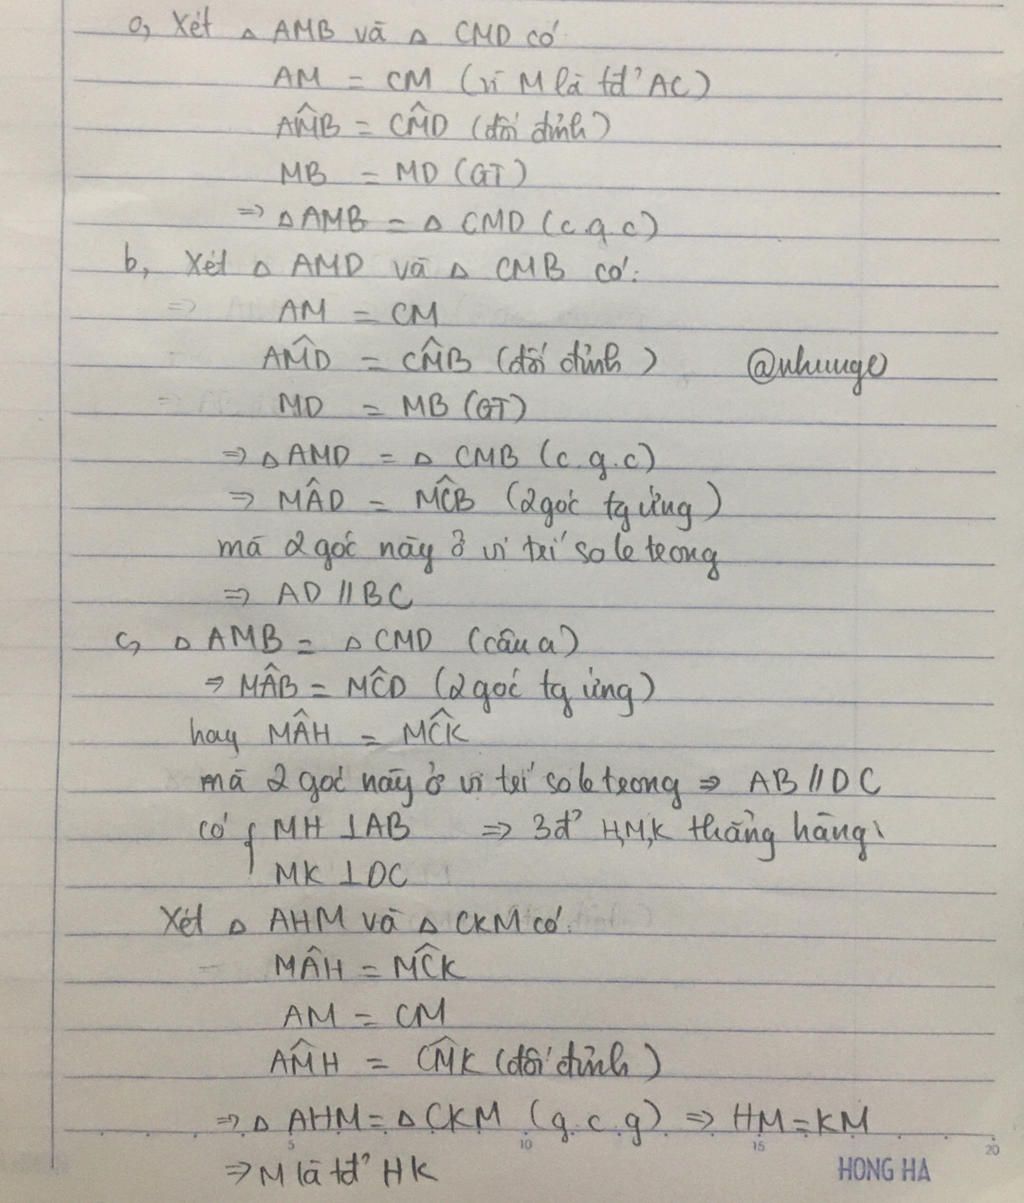 a, Xét △ AMB và △ CMD có
AM = CM (vì M là tđ' AC)
AM̂B = CM̂D (đối đỉnh)
MB = MD (GT)
=> △ AMB = △ CMD (c.g.c)
b, Xét △ AMD và △ CMB có:
=> AM = CM
AM̂D = CM̂B (đối đỉnh) @nhunge
MD = MB (GT)
=> △ AMD = △ CMB (c.g.c)
=> MÂD = MĈB (2 góc tg ứng)
mà 2 góc này ở vị trí so le trong
=> AD // BC
c, △ AMB = △ CMD (câu a)
=> MÂB = MĈD (2 góc tg ứng)
hay MÂH = MĈK
mà 2 góc này ở vị trí so le trong => AB // DC
có { MH ⊥ AB => 3 đ' H,M,K thẳng hàng
MK ⊥ DC
Xét △ AHM và △ CKM có
MÂH = MĈK
AM = CM
AM̂H = CM̂K (đối đỉnh)
=> △ AHM = △ CKM (g.c.g) => HM = KM
5 10 15 20
=> M là tđ' HK HONG HA